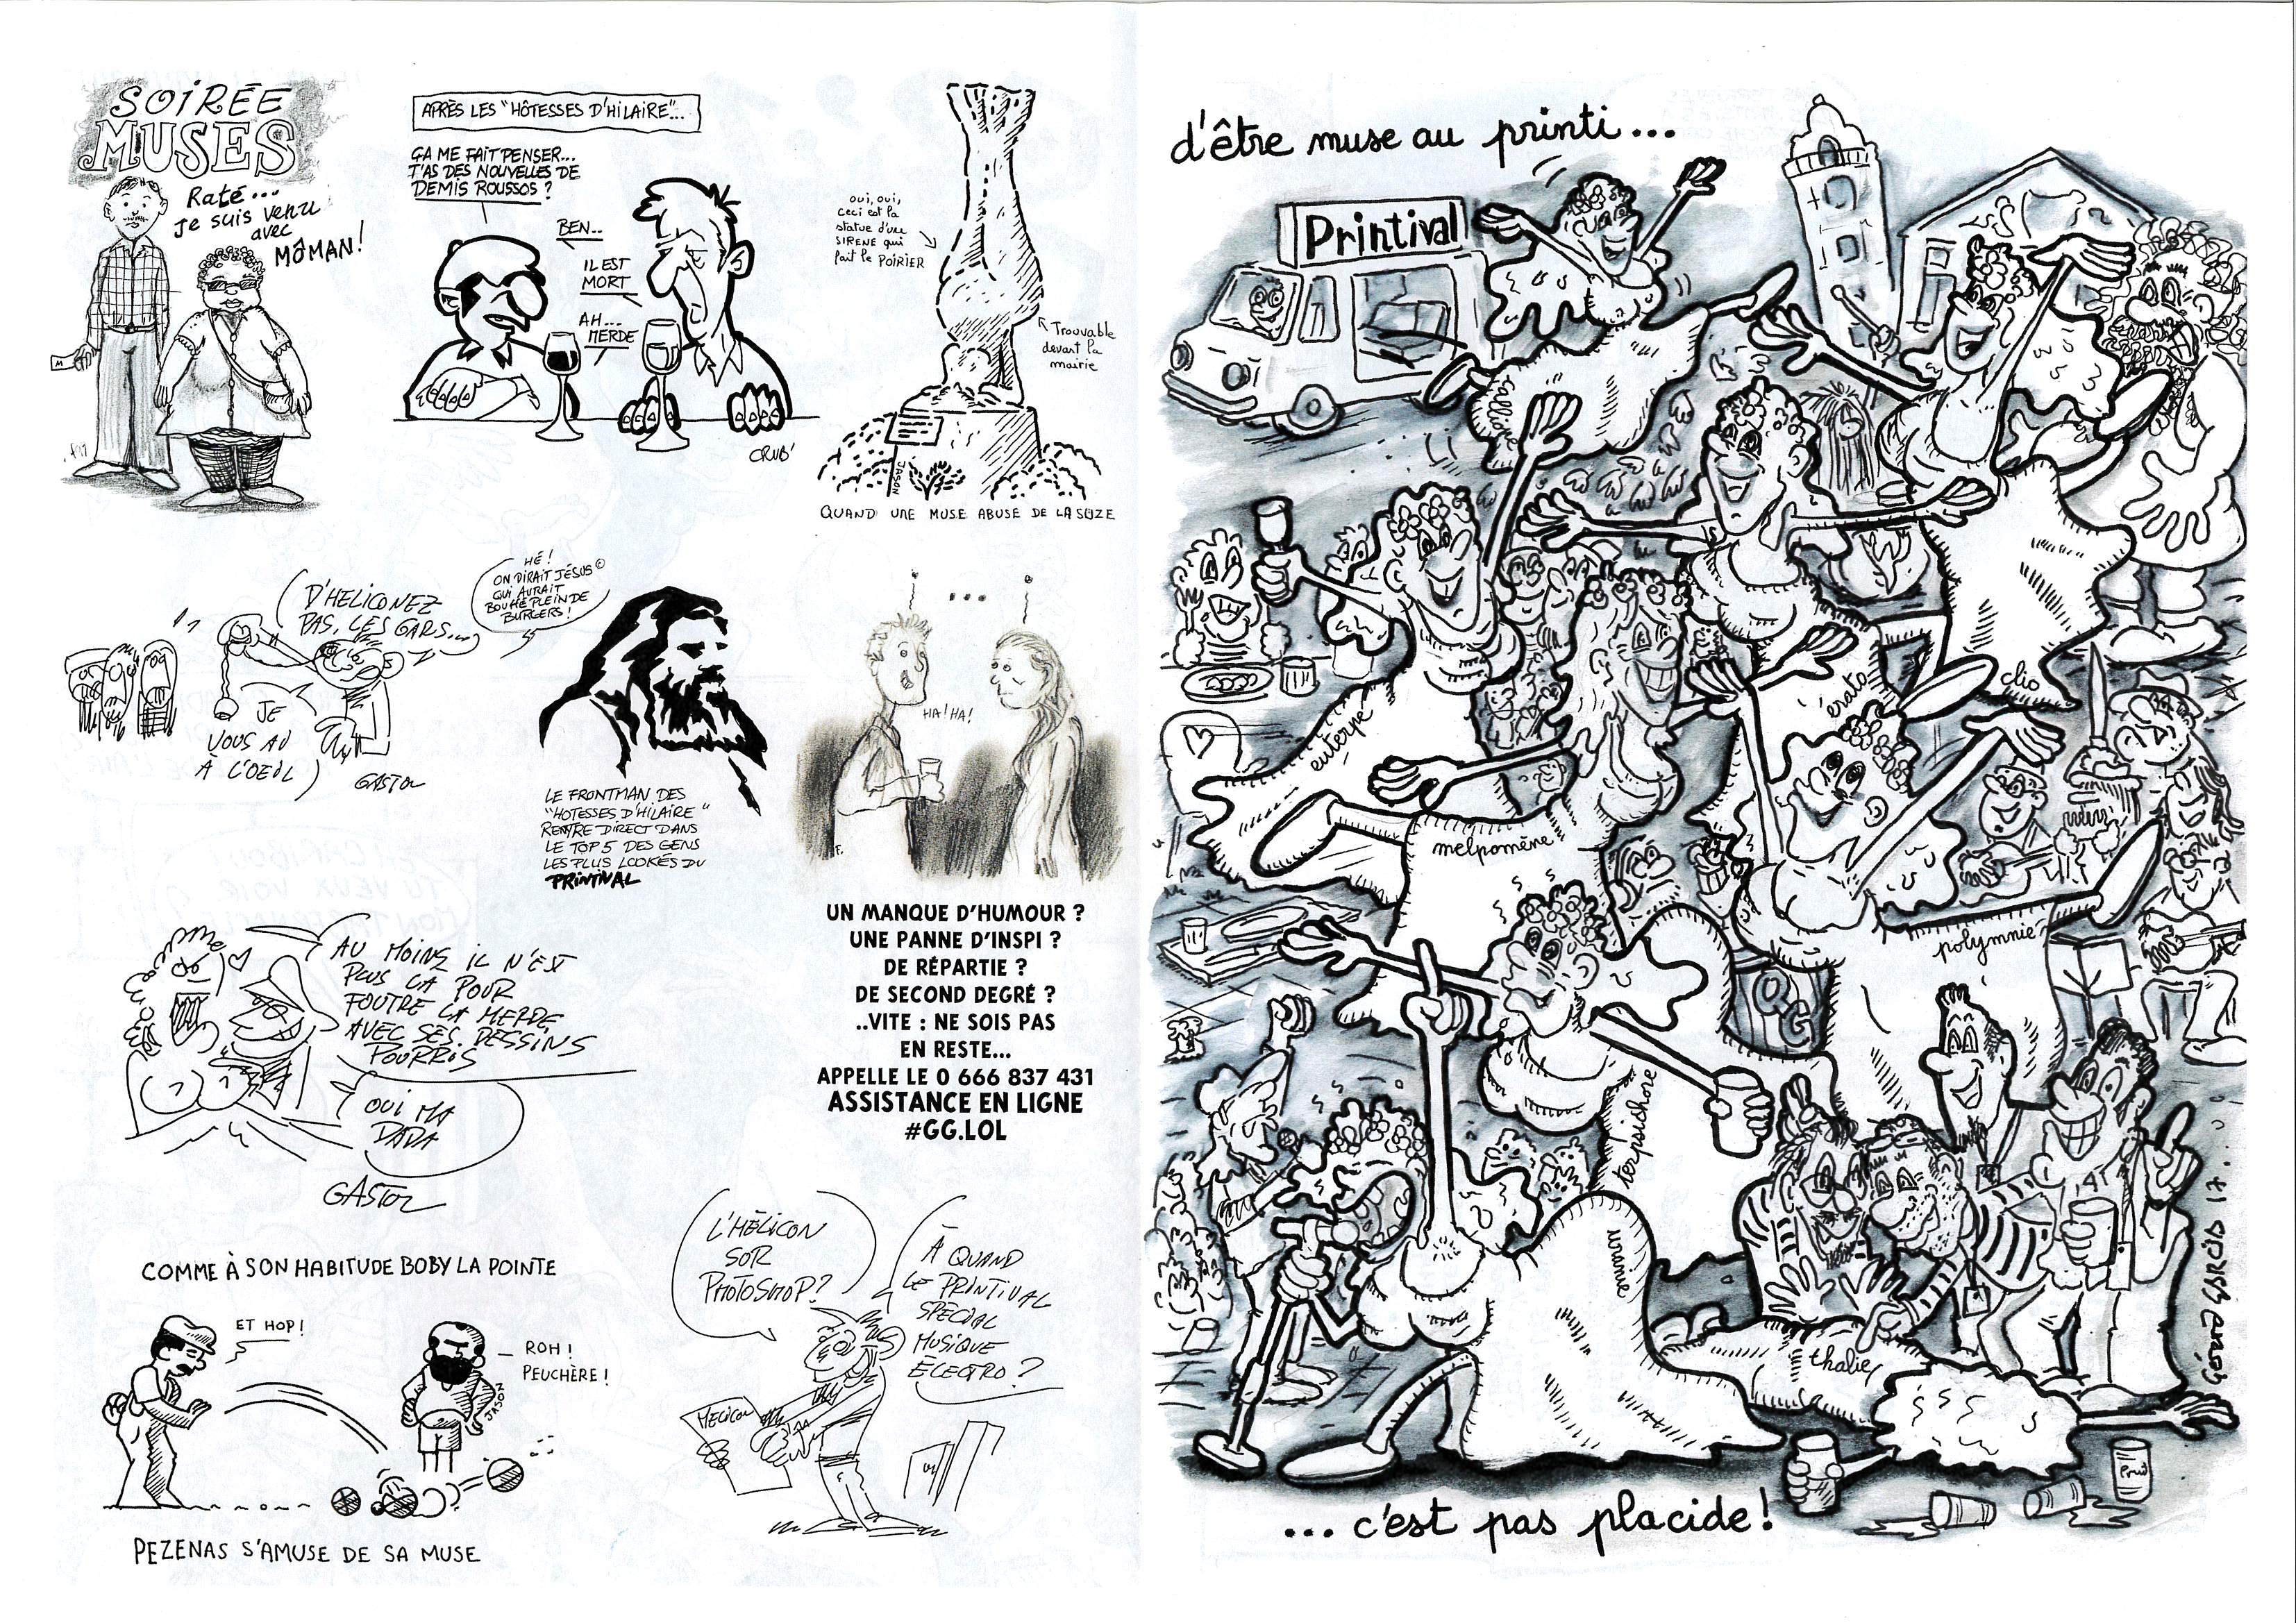 SOIRÉE
MUSES
Raté...
Je suis venu
avec
MÔMAN!
APRÈS LES "HÔTESSES D'HILAIRE"...
ÇA ME FAIT PENSER...
T'AS DES NOUVELLES DE
DEMIS ROUSSOS ?
BEN..
IL EST
MORT
AH...
MERDE
CRUB'
OUI, OUI,
ceci est la
statue d'une
SIRENE qui
fait le POIRIER
Trouvable
devant la
mairie
JASON
QUAND UNE MUSE ABUSE DE LA SUZE
D'HELICONEZ
PAS, LES GARS...
JE
VOUS AI
À L'OEIL
GASTOL
HÉ !
ON DIRAIT JÉSUS©
QUI AURAIT
BOUFFÉ PLEIN DE
BURGERS !
LE FRONTMAN DES
"HOTESSES D'HILAIRE"
RENTRE DIRECT DANS
LE TOP 5 DES GENS
LES PLUS LOOKÉS DU
PRINTIVAL
...
HA! HA!
F.
UN MANQUE D'HUMOUR ?
UNE PANNE D'INSPI ?
DE RÉPARTIE ?
DE SECOND DEGRÉ ?
..VITE : NE SOIS PAS
EN RESTE...
APPELLE LE 0 666 837 431
ASSISTANCE EN LIGNE
#GG.LOL
AU MOINS IL N'EST
PLUS LA POUR
FOUTRE LA MERDE
AVEC SES DESSINS
POURRIS
OUI MA
DADA
GASTOL
COMME À SON HABITUDE BOBY LA POINTE
ET HOP !
ROH !
PEUCHÈRE !
JASON
PEZENAS S'AMUSE DE SA MUSE
L'HÉLICON
SOR
PHOTOSHOP ?
À QUAND
LE PRINTIVAL
SPECIAL
MUSIQUE
ÉLECTRO ?
HELICON
d'être muse au printi...
Printival
calliope
clio
érato
euterpe
melpomène
polymnie
QG
terpsichore
uranie
thalie
Gérard GARCIA 17...
... c'est pas placide !